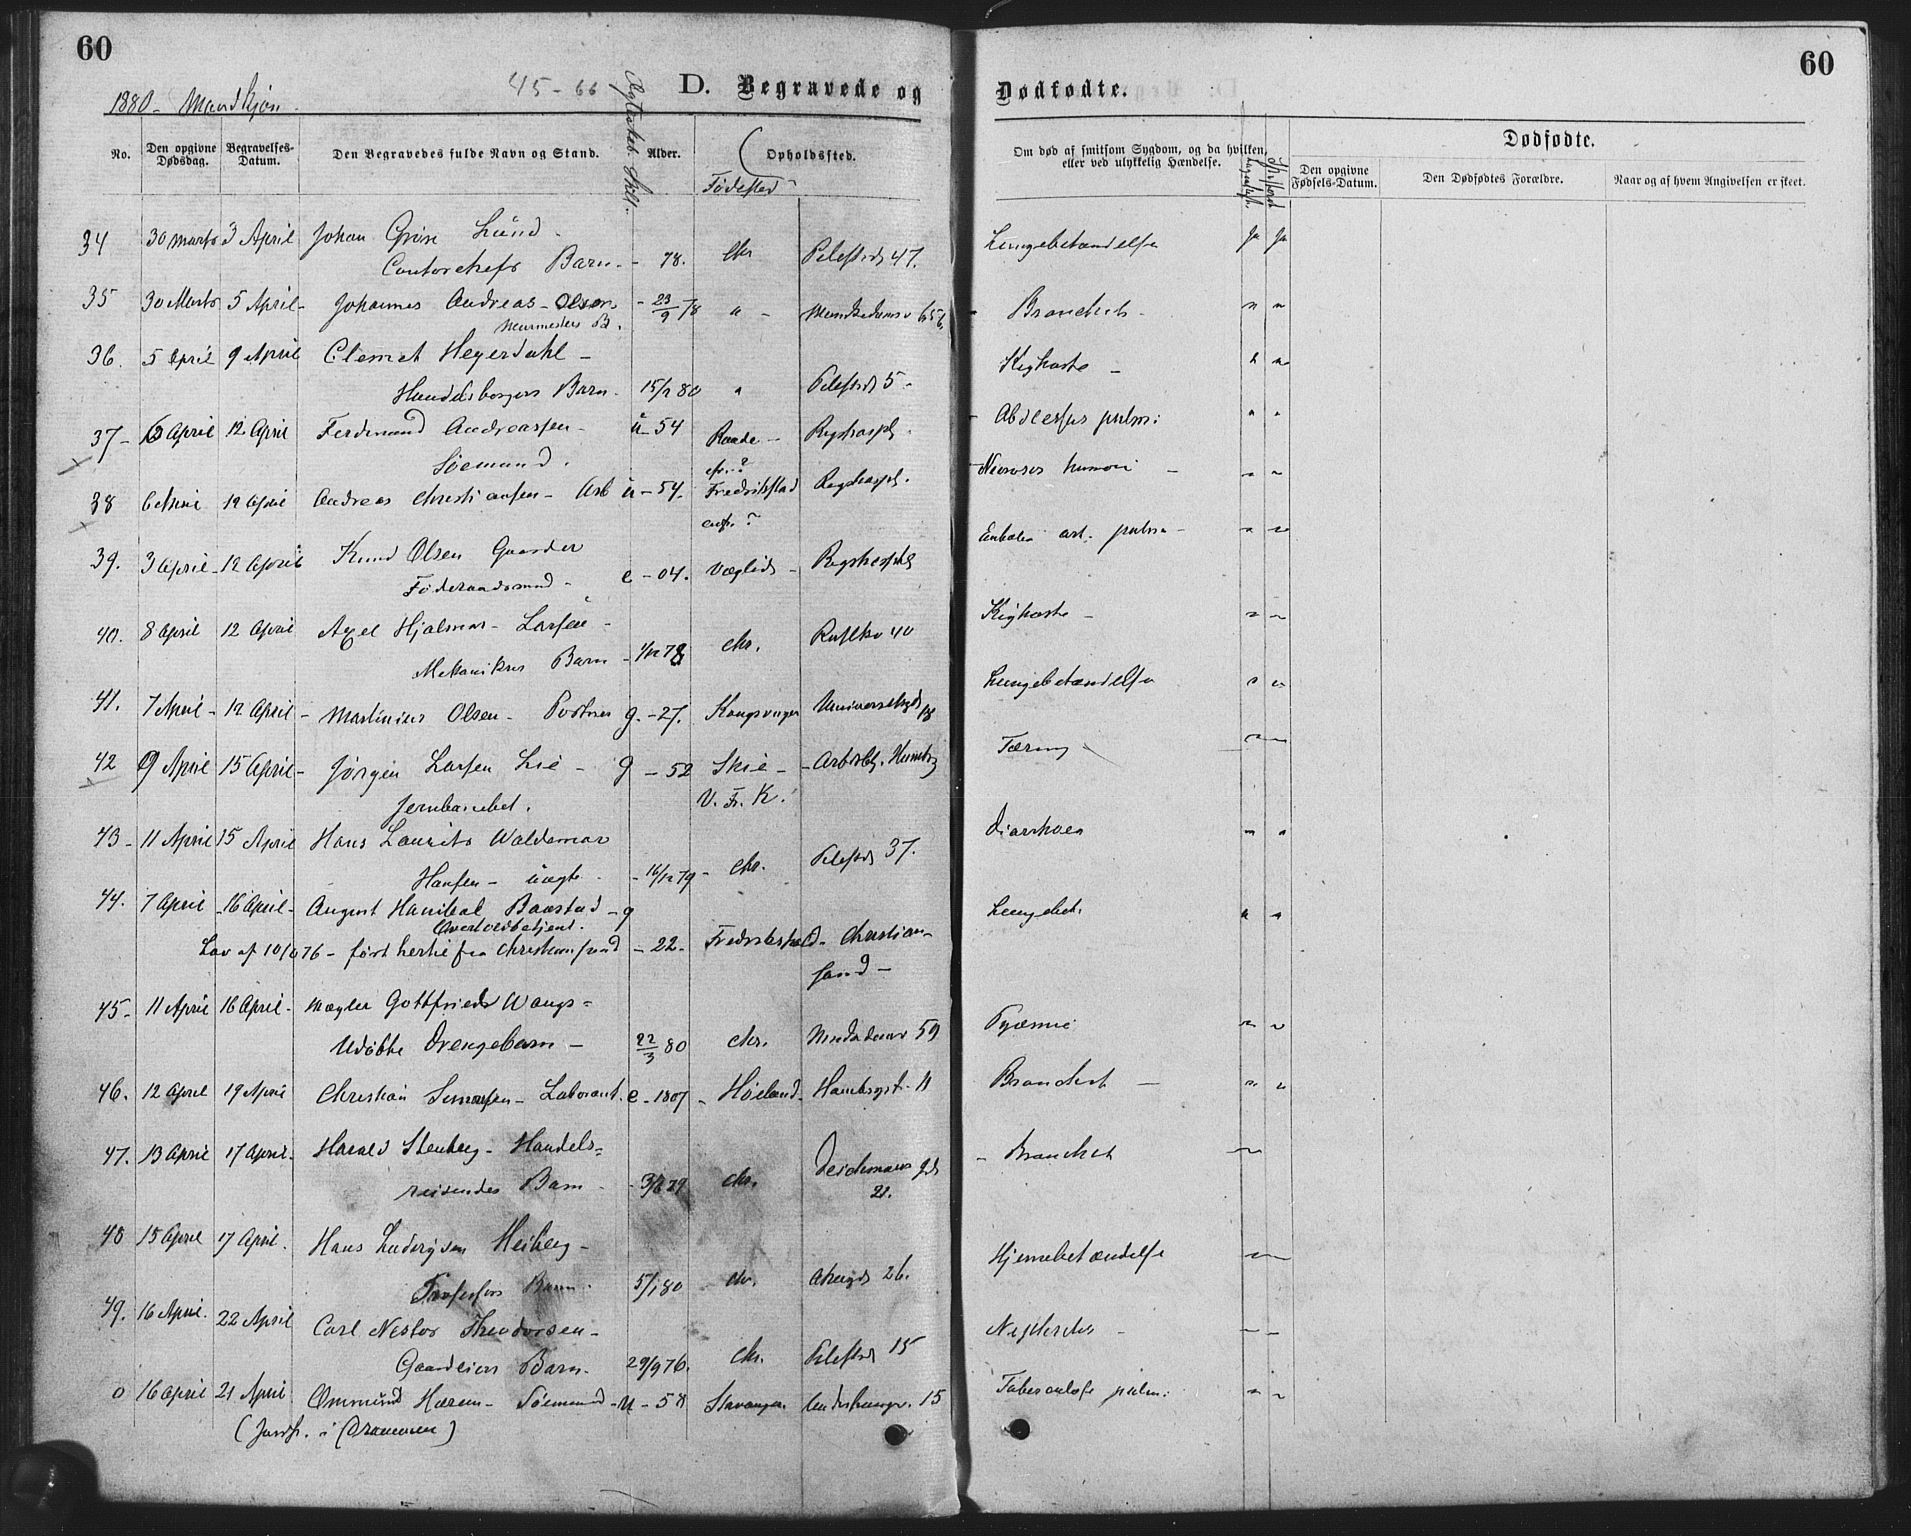 60
60
1880 - Mandkjøn.
45 - 66
D. Begravede og
Dødfødte.
No.
Den opgivne Dødsdag.
Begravelses-Datum.
Den Begravedes fulde Navn og Stand.
Alder.
Opholdssted.
Fødested
Om død af smitsom Sygdom, og da hvilken,
eller ved ulykkelig Hændelse.
Dødfødte.
Den opgivne Fødsels-Datum.
Den Dødfødtes Forældre.
Naar og af hvem Angivelsen er skeet.
34 30 Marts 3 April Johan Grøn Lund - Lungebetændelse ja ja
Contorchefs Barn. - 78. Chr Pilestrd 47.
35 30 Marts 5 April - Johannes Andreas - Olsen - 23/9 78 " - 656 Bronchit -
Murmesters B.
36. 5 April 9 April Clemet Heyerdahl - Kighoste -
Handelsborgers Barn. 15/2 80 " Pilestrd 5 -
37 - 6 April 12 April Ferdinand Andreassen - u - 54 Raade - Rigshospl. - Abscessus pulm:
Sømand.
38 6 April 12 April Andreas Christiansen - Arb u - 54. Fredrikstad Rigshospl.
39. 3 April - 12 April Knud Olsen Gaarder Embolia art. pulm -
Føderaadsmand - e - 04. Væglid - Rigshospbl
40. 8 April 12 April Axel Hjalmar - Larsen - Kighoste -
Mekanikers Barn - 1/12 78 Chr. 40
41. 7 April - 12 April - Martinius Olsen - g. - 27. Kongsvinger Universitetsgd 18 Lungebetændelse
42 9 April 15 April - Jørgen Larsen Lie - g - 52 Skie - Tæring
Jernbanebet. V. Fr. K.
43 - 11 April 15 April Hans Laurits Waldemar Diarrhoea
Hansen - uægte - 16/12 79 - Chr. Pilestrd 37.
44. 7 April - 16 April - August Hanibal Baastad - g Lungebet.
Lov af 10/6 76 - ført hertil fra Christiansand - 22 - Fredrikshald - Christian-
sand -
45 - 11 April 16 April - Mægler Gottfried Wangs - Pyæmie
Udøbte Drengebarn - 22/3 80 Chr. 59
46. 12 April 19 April Christian Simonsen - Laborant. e - 1807 - Høland - Hambrgt. 11 Bronchit -
47. 13 April 17 April. Harald Stenberg - Handels- - Bronchit
reisendes Barn - 79 Chr. Deichmans gd 21.
48 15 April 17 April. Hans Ludvigsen Heiberg - Hjernebetændelse
Professors Barn. 5/1 80 Chr. Akersgd 26.
49. 16 April. 22 April Carl Nestor Theodorsen -
Gaardeiers Barn. 29/9 76. Chr. Pilestrd 15
0 16 April 21 April Ommund Hærem - Sømand - u - 58 Stavanger. 15 Tuberculose pulm:
(Jordf. i Drammen)